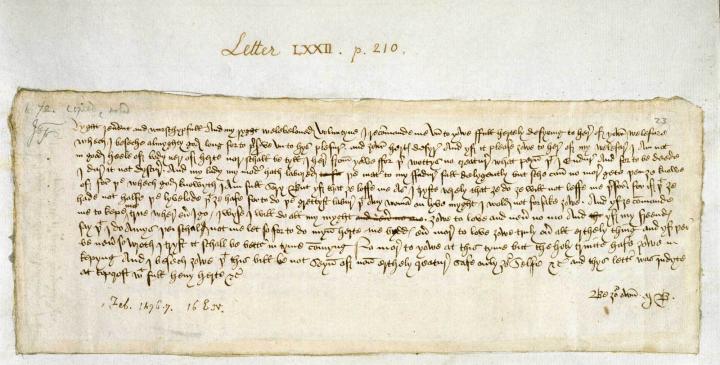 Letter LXXII. p. 210.
23
Ryght reuerent and wurschypfull and my ryght welebeloued Voluntyne I recomande me vn to yowe full hertely desyring to here of yowr welefare
whech I beseche almyghty god long for to preserve vn to hys plesur and yowr hertys desyre And yf it please yowe to here of my welefar I am not
in good heele of body ner of herte nor schall be tyll I here from yowe for þer wottys no creature what peyn þt I endure And for to be deede
I dare it not dyscur And my lady my moder hath labored þe mater to my fadur full delygently but sche can no more gete þen ye knowe
of for þe whech god knowyth I am full sory But yf that ye loffe me as I tryste verely that ye do ye will not leffe me þerfor for if þt ye
hade not halfe þe lyvelode þt ye hafe for to do þe grettyst labur þt any woman on lyve myght I wold not forsake yowe And yf ye comande
me to kepe me true where euer I go I wyse I will do all my myght yowe to love and neuer no mo And yf my freendys
say þt I do amys þei schal not me let so for to do myn herte me byddys euer more to love yowe truly ouer all erthely thing and yf þei
be neuer so wroth I tryst it schall be better in tyme comyng No more to yowe at this tyme but the holy trinite hafe yowe in
kepyng And I besech yowe þt this bill be not seyn of non erthely creature safe only your selfe &c And thys letter was indyte
at Topcroft wt full heuy herte &c
Be your own M B.
Feb. 1476-7. 16 E. IV.